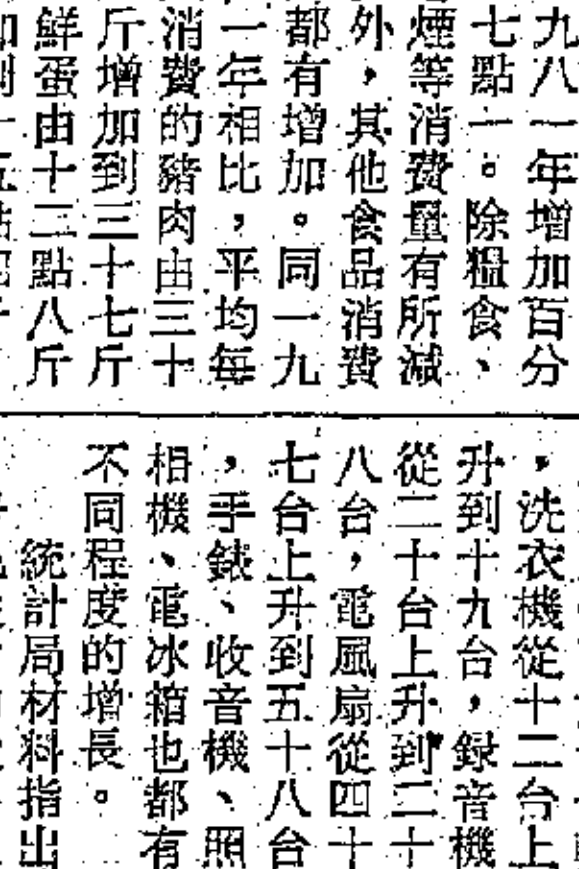 九八一年增加百分
七點一。除糧食、
煙等消費量有所減
外，其他食品消費
都有增加。同一九
一年相比，平均每
消費的豬肉由三十
斤增加到三十七斤
鮮蛋由十二點八斤
，洗衣機從十二台上
升到十九台，録音機
從二十台上升到二十
八台，電風扇從四十
七台上升到五十八台
，手錶、收音機、照
相機、電冰箱也都有
不同程度的增長。
統計局材料指出